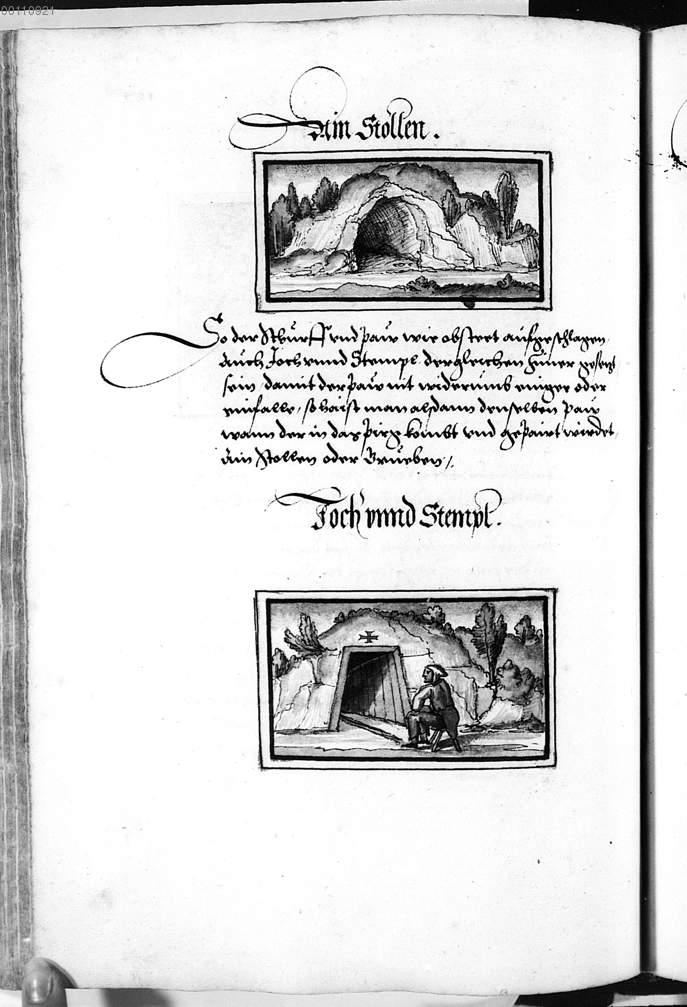 00110921
Ain Stollen.
So der Schurff vnd paw wie obsteet aufgeschlagen
Auch Joch vnnd Stempl dergleichen Fürer gesetzt
sein, damit der paw nit widerumb einge oder
einfalle, so haist man alsdann denselben paw
wann der in das pirg kombt vnd gepawt wirdet,
Ain Stollen oder Grueben /.
Joch vnnd Stempl.